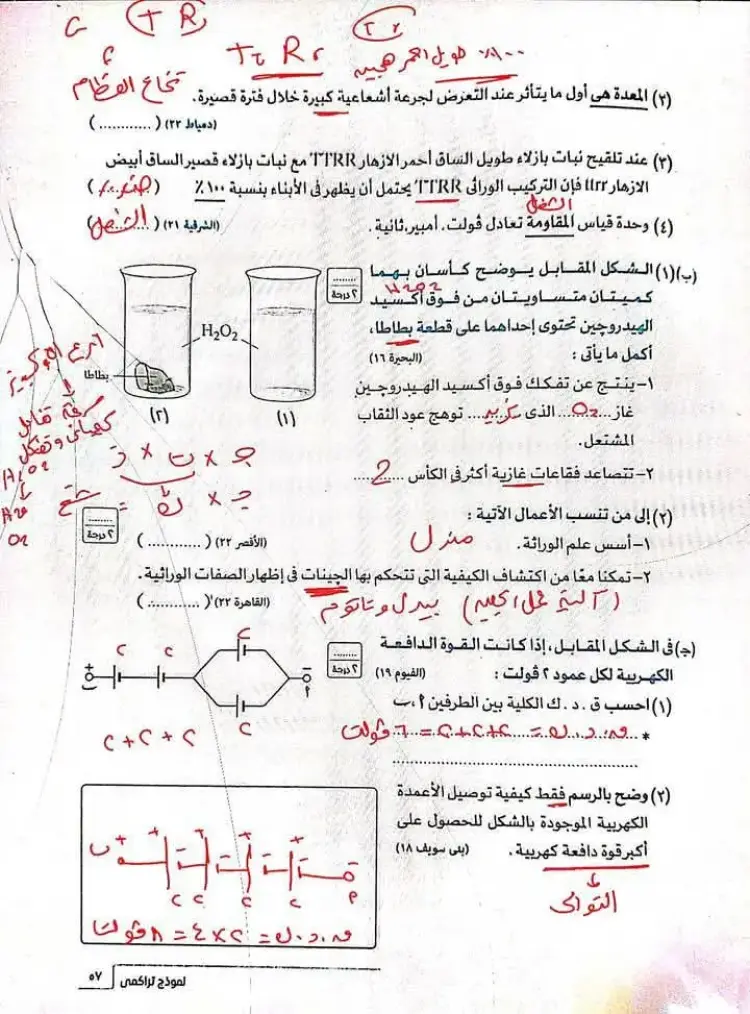 T R
Tt Rr
١٠٠٪ طويل احمر هجينة
نخاع العظام
(٢) المعدة هى أول ما يتأثر عند التعرض لجرعة أشعاعية كبيرة خلال فترة قصيرة.
(دمياط ٢٢) (............)
(٣) عند تلقيح نبات بازلاء طويل الساق أحمر الازهار TTRR مع نبات بازلاء قصير الساق أبيض
الازهار ttrr فإن التركيب الوراثى TTRR يحتمل أن يظهر فى الأبناء بنسبة ١٠٠٪
الشغل
(٤) وحدة قياس المقاومة تعادل ڤولت. أمبير.ثانية. (الشرقية ٢١) (الشغل)
(ب)(١) الشكل المقابل يوضح كأسان بهما
H2O2
كميتان متساويتان من فوق أكسيد
الهيدروجين تحتوى إحداهما على قطعة بطاطا،
أكمل ما يأتى : (البحيرة ١٦)
٢ درجة
H₂O₂
بطاطا
(٢) (١)
١- ينتج عن تفكك فوق أكسيد الهيدروجين
غاز ...O2... الذى ...يزيد... توهج عود الثقاب
المشتعل.
٢- تتصاعد فقاعات غازية أكثر فى الكأس ...2...
جـ × ت × ز
جـ × ك = شغ
H2O2
↓
O2
(٢) إلى من تنسب الأعمال الآتية :
٢ درجة
١- أسس علم الوراثة. مندل (الأقصر ٢٢) (............)
٢- تمكنا معًا من اكتشاف الكيفية التى تتحكم بها الجينات فى إظهار الصفات الوراثية.
(آلية عمل الجين) بيدل وتاتوم (القاهرة ٢٢) (............)
(جـ) فى الشكل المقابل، إذا كانت القوة الدافعة
الكهربية لكل عمود ٢ ڤولت : (الفيوم ١٩)
٢ درجة
(١) احسب ق. د. ك الكلية بين الطرفين ٢، ب
* ق.د.ك = ٢+٢+٢ = ٦ ڤولت
٢ + ٢ + ٢
(٢) وضح بالرسم فقط كيفية توصيل الأعمدة
الكهربية الموجودة بالشكل للحصول على
أكبر قوة دافعة كهربية. (بنى سويف ١٨)
↓
التوالى
٢ ٢ ٢ ٢
ق.د.ك = ٢×٤ = ٨ ڤولت
نموذج تراكمى ٥٧